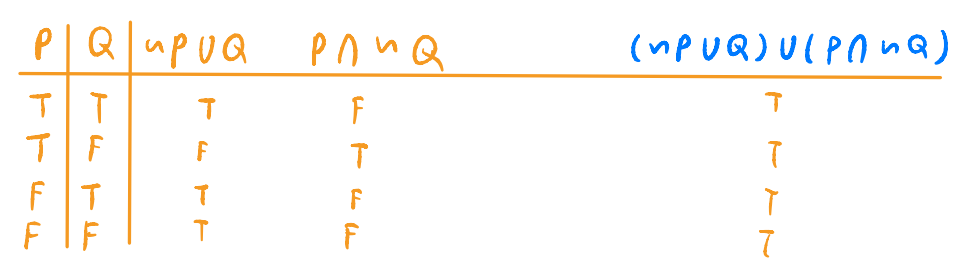 P Q ~P∪Q P∩~Q (~P∪Q)∪(P∩~Q)
T T T F T
T F F T T
F T T F T
F F T F T